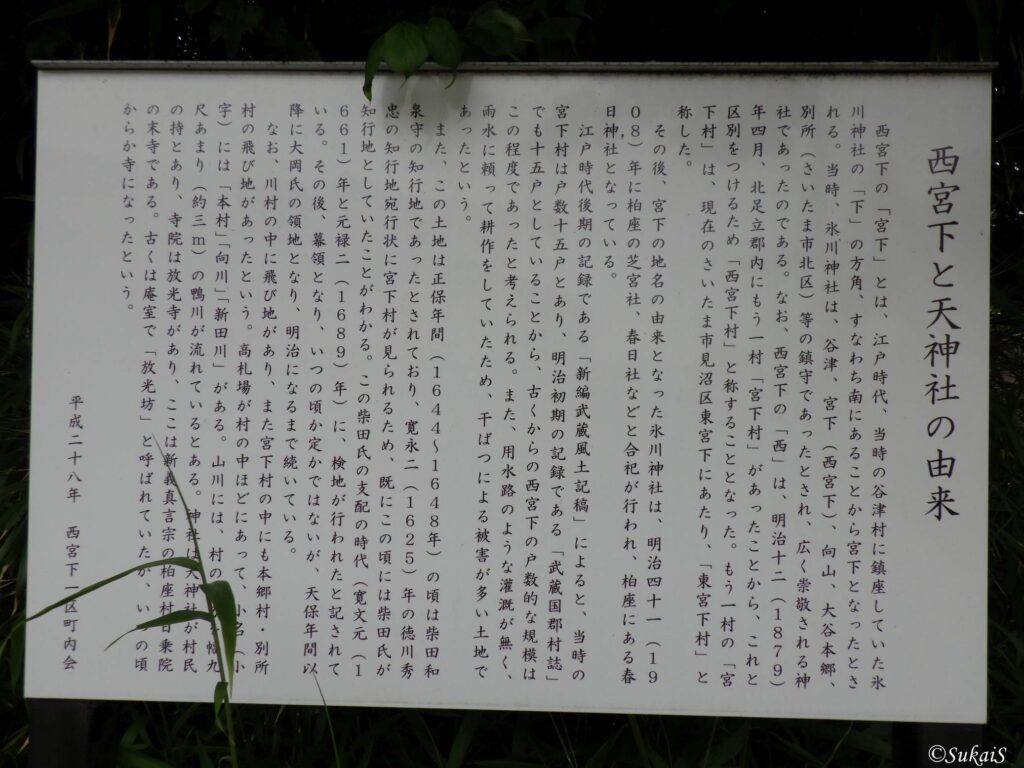 西宮下と天神社の由来
西宮下の「宮下」とは、江戸時代、当時の谷津村に鎮座していた氷
川神社の「下」の方角、すなわち南にあることから宮下となったとさ
れる。当時、氷川神社は、谷津、宮下（西宮下）、向山、大谷本郷、
別所（さいたま市北区）等の鎮守であったとされ、広く崇敬される神
社であったのである。なお、西宮下の「西」は、明治十二（1879）
年四月、北足立郡内にもう一村「宮下村」があったことから、これと
区別をつけるため「西宮下村」と称することとなった。もう一村の「宮
下村」は、現在のさいたま市見沼区東宮下にあたり、「東宮下村」と
称した。
その後、宮下の地名の由来となった氷川神社は、明治四十一（19
08）年に柏座の芝宮社、春日社などと合祀が行われ、柏座にある春
日神社となっている。
江戸時代後期の記録である「新編武蔵風土記稿」によると、当時の
宮下村は戸数十五戸とあり、明治初期の記録である「武蔵国郡村誌」
でも十五戸としていることから、古くからの西宮下の戸数的な規模は
この程度であったと考えられる。また、用水路のような灌漑が無く、
雨水に頼って耕作をしていたため、干ばつによる被害が多い土地で
あったという。
また、この土地は正保年間（1644～1648年）の頃は柴田和
泉守の知行地であったとされており、寛永二（1625）年の徳川秀
忠の知行地宛行状に宮下村が見られるため、既にこの頃には柴田氏が
知行地としていたことがわかる。この柴田氏の支配の時代（寛文元（1
661）年と元禄二（1689）年）に、検地が行われたと記されて
いる。その後、幕領となり、いつの頃か定かではないが、天保年間以
降に大岡氏の領地となり、明治になるまで続いている。
なお、川村の中に飛び地があり、また宮下村の中にも本郷村・別所
村の飛び地があったという。高札場が村の中ほどにあって、小名（小
字）には「本村」「向川」「新田川」がある。山川には、村の
幅九
尺あまり（約三m）の鴨川が流れているとある。神社は天神社が村民
の持とあり、寺院は放光寺があり、ここは新義真言宗の柏座村日乗院
の末寺である。古くは庵室で「放光坊」と呼ばれていたが、いつの頃
からか寺になったという。
平成二十八年　西宮下一区町内会
©SukaiS